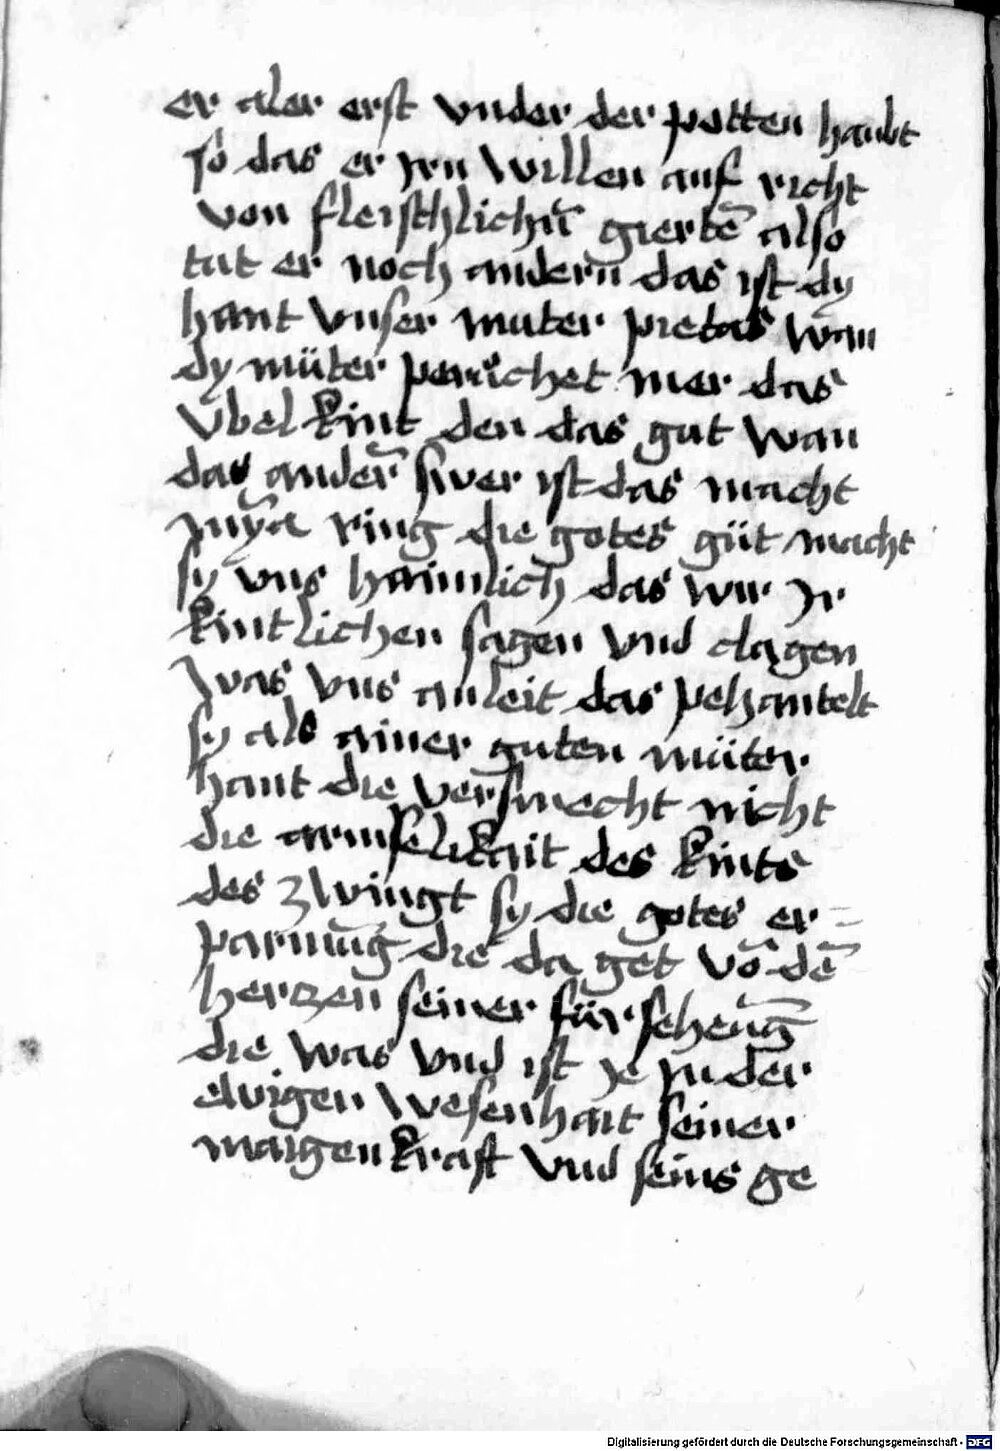 er aler erst vnder der potten haubt
so das er jrn willen auf richt
von fleischlichñ gierbẽ also
tut er noch andern das ist dy
hant vnser muter pietas wãn
dy müter perüchet mer das
vbel kint den das gut wan
das ander̃ swer ist das macht
ring die gotes güt macht
sy vns haimlich das wir jr
kintlichen sagen vnd clagen
was vns anleit das pehantelt
sy als ainer guten müter
hant die versmecht nicht
die armselikait des kints
des zwingt sy die gotes er=
parmũg die da get võ dẽ
herczen seiner fürseheng̃
die was vnd ist je jn der
ewigen wesenhait seiner
maigenkraft vnd seins ge
Digitalisierung gefördert durch die Deutsche Forschungsgemeinschaft - DFG